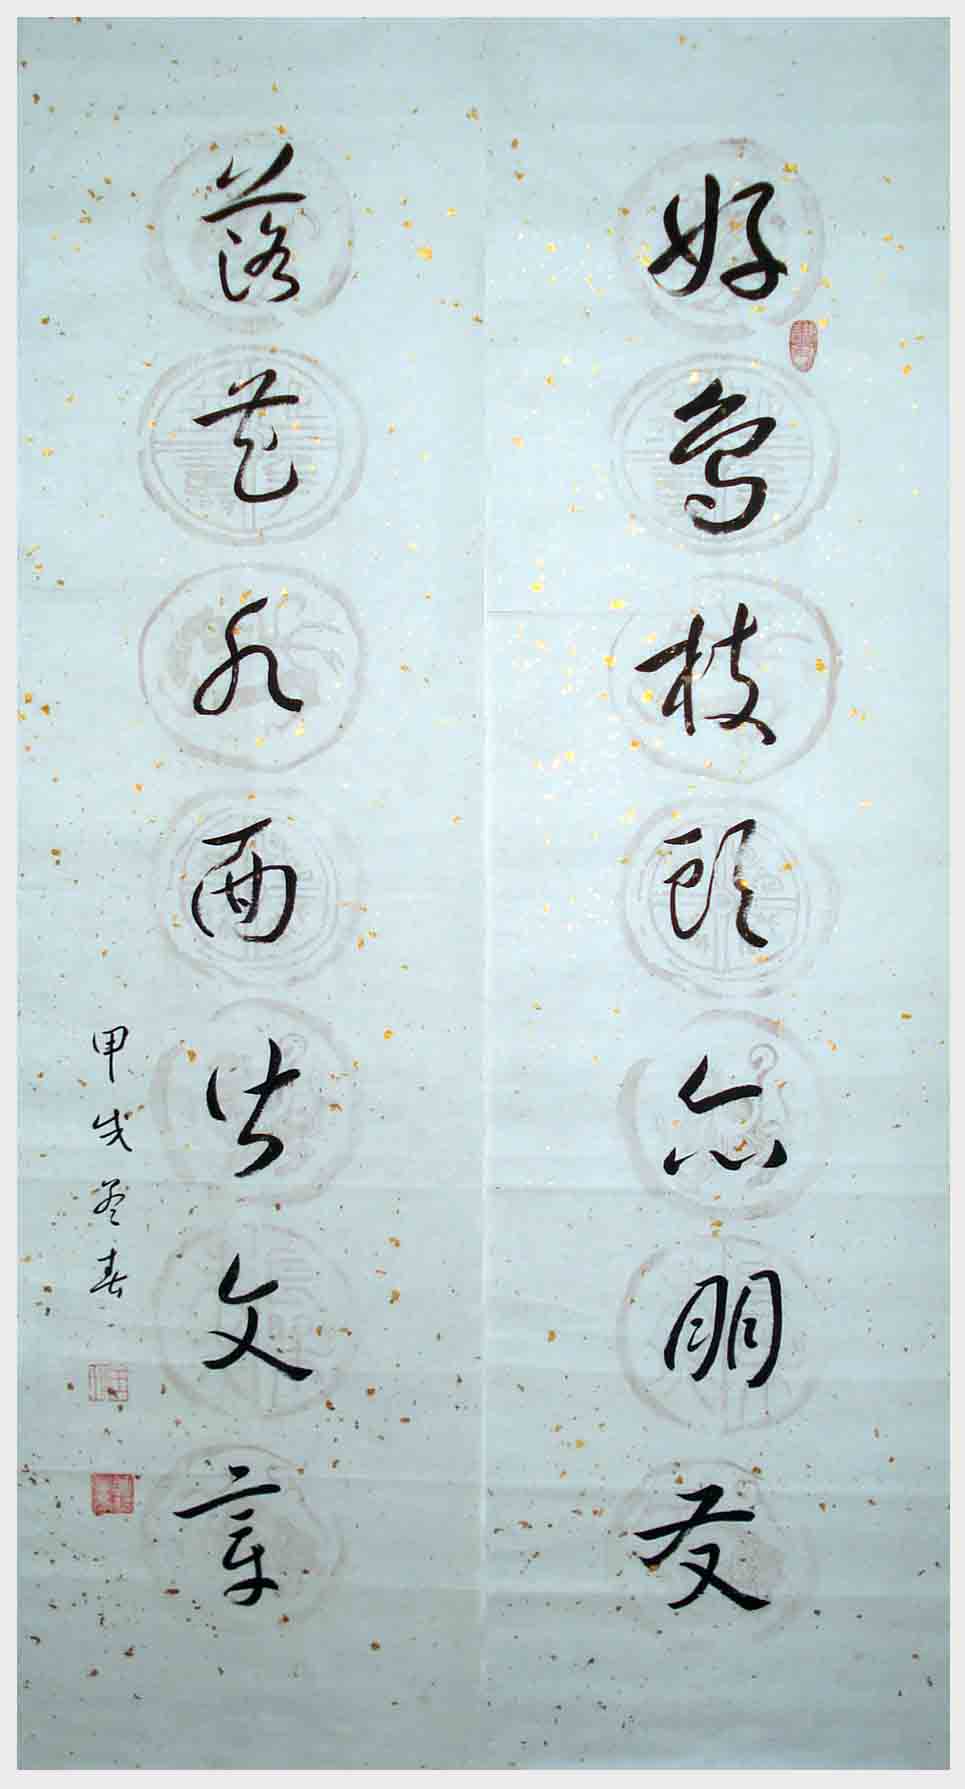 好鸟枝头亦朋友
落花水面皆文章
甲戌孟春